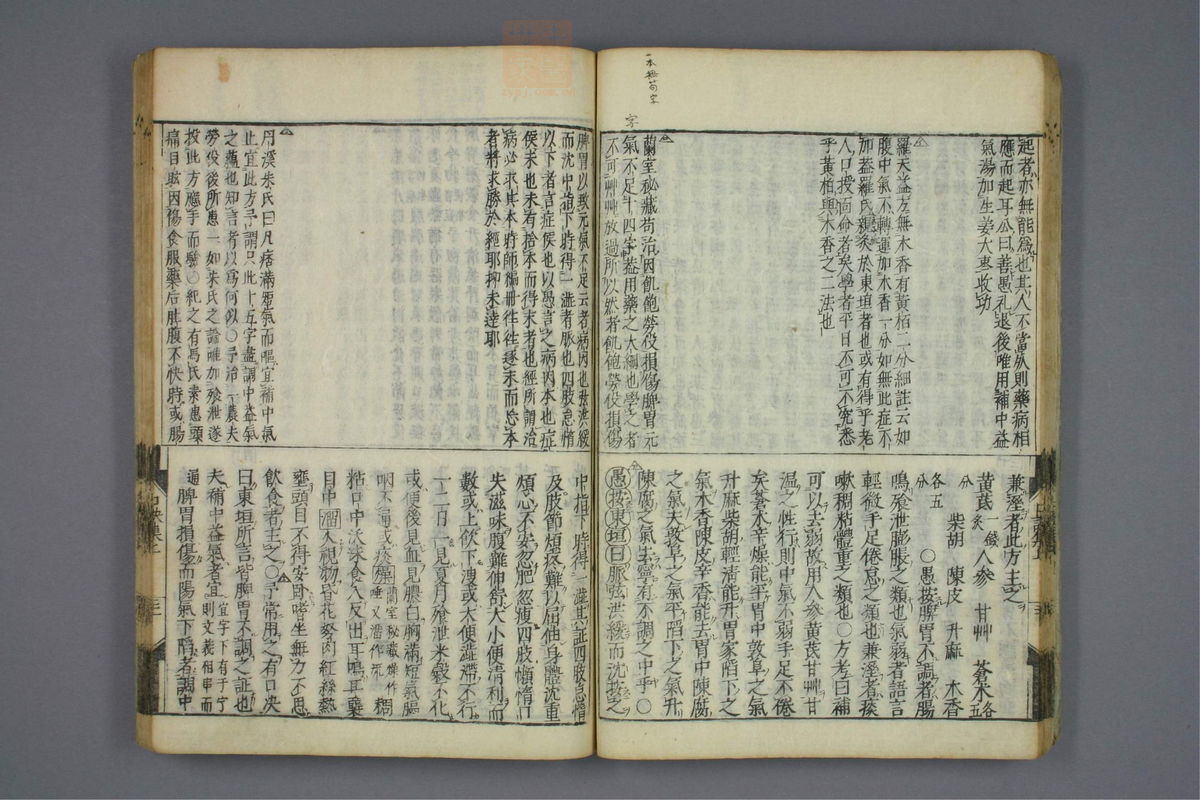 一本無苟字
起者亦無能爲也其人不當死則藥病相
應而起耳公曰善愚禮退後唯用補中益
氣湯加生姜大棗收功
羅天益方無木香有黄栢二分細註云如
腹中氣不轉運加木香一分如無此症不
加益羅氏親炙於東垣者也或有得乎老
人口授面命者矣學者平日不可不究悉
乎黄栢與木香之二法也
字
蘭室秘藏苟治因飢飽勞役損傷脾胃元
氣不足十四字葢用藥之大綱也學之者
不可艸艸放過所以然者飢飽勞役損傷
兼溼者此方主之
黄茋炙一錢人參 甘艸 蒼术各五
分 柴胡 陳皮 升麻 木香
各五分 ○愚按脾胃不調者腸
鳴飧泄膨脹之類也氣弱者語言
輕微手足倦怠之類也兼溼者痰
嗽稠粘體重之類也○方考曰補
可以去弱故用人參黄茋甘艸甘
温之性行則中氣不弱手足不倦
矣蒼术辛燥能平胃中敦阜之氣
升麻柴胡輕清能升胃家䧟下之
氣木香陳皮辛香能去胃中陳腐
之氣夫敦阜之氣平䧟下之氣升
陳腐之氣去寧有不調之中乎○
愚按東垣曰脈弦洪緩而沈按之
脾胃以致元氣不足云者病因也弦洪緩
而沈中指下時得一澁者脈也四肢怠惰
以下者言症候也以愚言之病因本也症
候末也未有捨本而得末者也經所謂治
病必求其本時師編冊往往逐末而忘本
者將求勝於經耶抑未達耶
丹溪朱氏曰凡痞滿短氣而嘔宜補中氣
止宜此方予謂只此十五字盡調中益氣
之蘊也知言者以爲何似○予治一農夫
勞役後所患一如朱氏之證唯加飧泄遂
投此方應手而驗○紀之有馮氏素患頭
痛目眩因傷食服藥后肚腹不快時或腸
中指下時得一澁其証四肢怠惰
及肢節煩疼難以屈伸身體沈重
煩心不安忽肥忽瘦四肢懶惰口
失滋味腹難伸舒大小便清利而
數或上飲下溲或大便澁滯不行
一二日一見夏月飧泄米穀不化
或便後見血見膿白胸滿短氣膈
咽不通或痰㗜蘭室秘藏㗜作唾又濇作㱥稠
粘口中沃沫食入反出耳鳴耳聾
目中溜火視物昏花努肉紅絲熱
壅頭目不得安卧嗜坐無力不思
飲食者主之○予常用之有口决
曰東垣所言皆脾胃不調之証也
夫補中益氣者宜宜字下有于字則文義相串而
通脾胃損傷而陽氣下䧟者調中